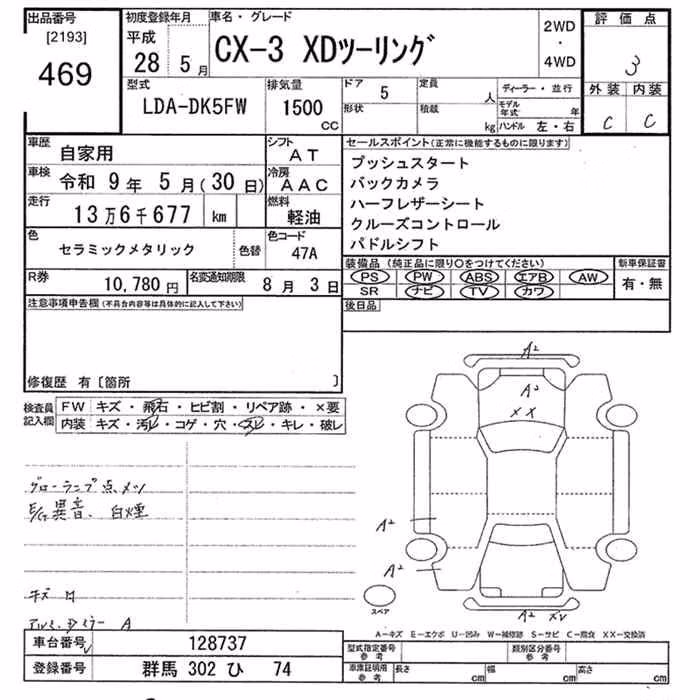 出品番号
[2193]
469
初度登録年月
平成
28 5月
車名・グレード
CX-3 XDツーリング
2WD
・
4WD
評価点
3
外装 内装
C C
型式
LDA-DK5FW
排気量
1500
CC
ドア 5
形状
定員 人
積載 kg
ディーラー・並行
モデル年式 年
ハンドル 左・右
車歴 自家用
シフト AT
車検 令和 9年 5月(30日)
冷房 AAC
走行 13万6千677 km
燃料 軽油
色 セラミックメタリック 色替
色コード 47A
R券 10,780円
名変通知期限 8月 3日
セールスポイント(正常に機能するものに限ります)
プッシュスタート
バックカメラ
ハーフレザーシート
クルーズコントロール
パドルシフト
装備品(純正品に限り○をつけてください)
PS PW ABS エアB AW
SR ナビ TV カワ
新車保証書
有・無
後日品
注意事項申告欄(不具合内容等は具体的に記入して下さい)
修復歴 有〔箇所 〕
検査員記入欄
FW キズ・飛石・ヒビ割・リペア跡・×要
内装 キズ・汚レ・コゲ・穴・スレ・キレ・破レ
グローランプ点メツ
E/G異音、白煙
キズ
A
A2
A2
XX
A2
A2
A2
スペア
A-キズ E-エクボ U-凹み W-補修跡 S-サビ C-腐食 XX-交換済
車台番号 128737
登録番号 群馬 302 ひ 74
型式指定番号 参考
類別区分番号 参考
車庫証明用 参考
長さ cm 幅 cm 高さ cm